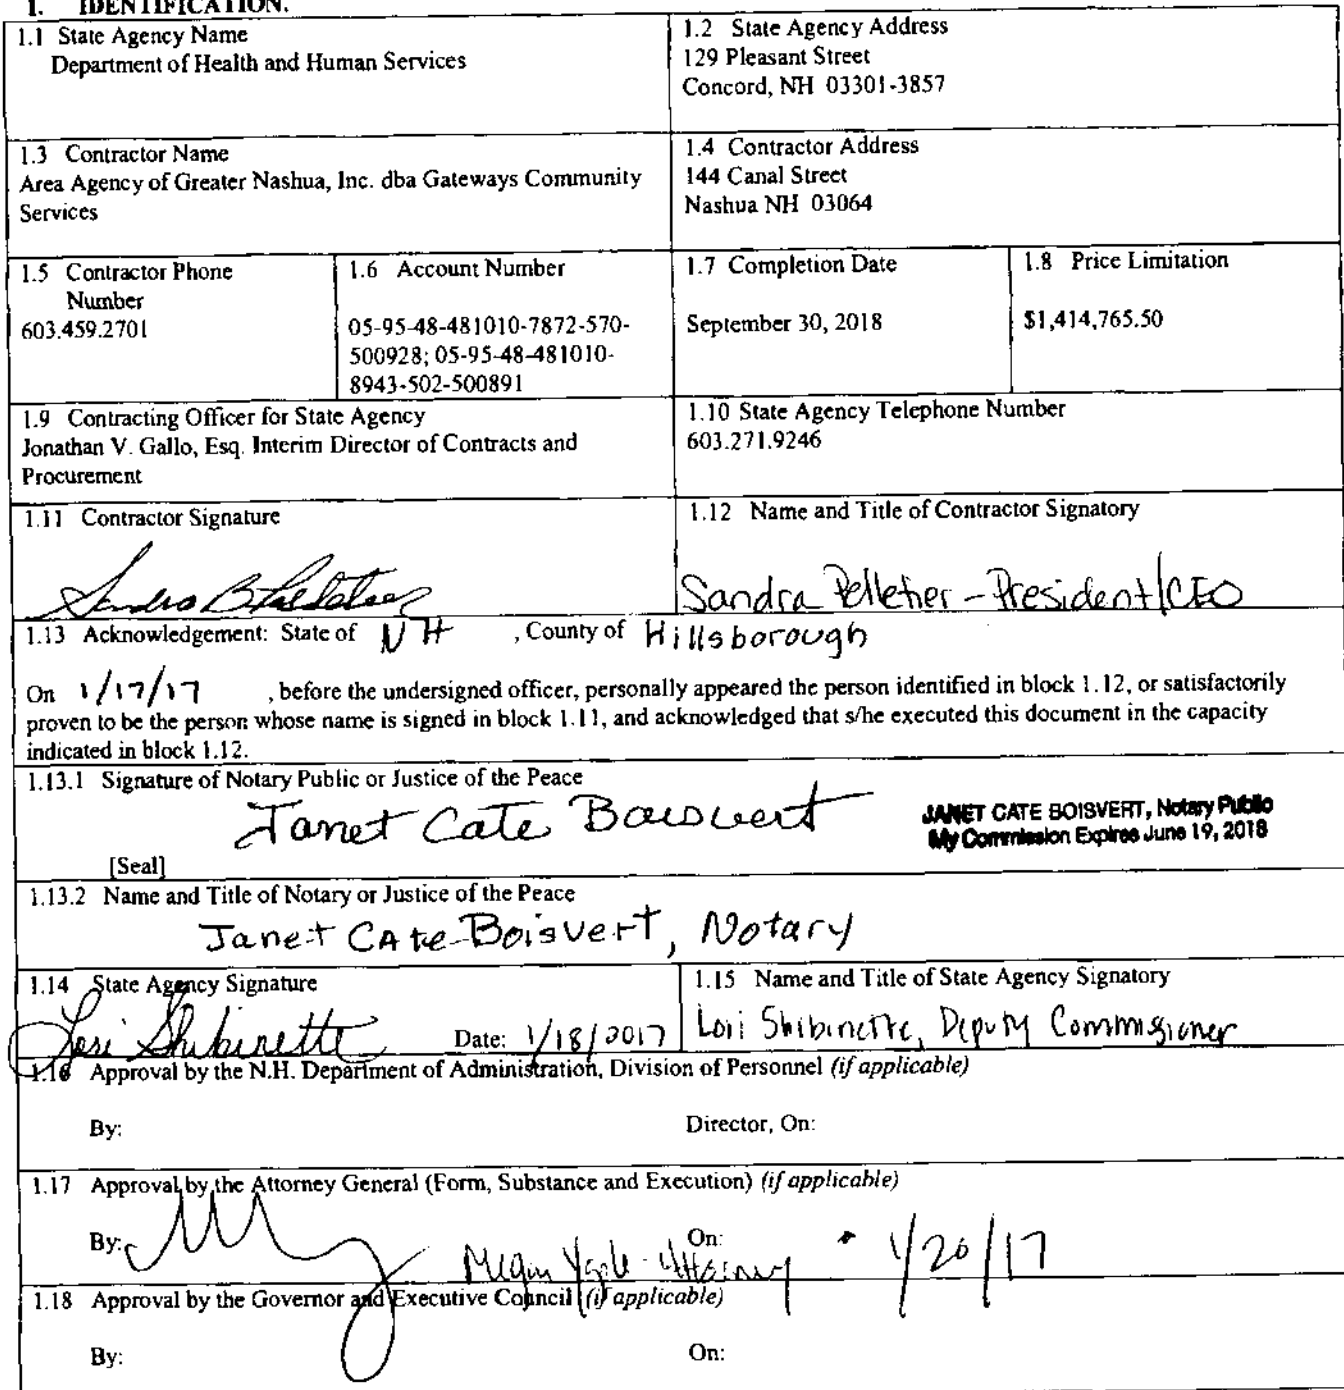 1. IDENTIFICATION.
1.1 State Agency Name
Department of Health and Human Services
1.2 State Agency Address
129 Pleasant Street
Concord, NH 03301-3857
1.3 Contractor Name
Area Agency of Greater Nashua, Inc. dba Gateways Community
Services
1.4 Contractor Address
144 Canal Street
Nashua NH 03064
1.5 Contractor Phone
Number
603.459.2701
1.6 Account Number
05-95-48-481010-7872-570-
500928; 05-95-48-481010-
8943-502-500891
1.7 Completion Date
September 30, 2018
1.8 Price Limitation
$1,414,765.50
1.9 Contracting Officer for State Agency
Jonathan V. Gallo, Esq. Interim Director of Contracts and
Procurement
1.10 State Agency Telephone Number
603.271.9246
1.11 Contractor Signature
Sandra B. Pelletier
1.12 Name and Title of Contractor Signatory
Sandra Pelletier - President/CEO
1.13 Acknowledgement: State of NH , County of Hillsborough
On 1/17/17 , before the undersigned officer, personally appeared the person identified in block 1.12, or satisfactorily
proven to be the person whose name is signed in block 1.11, and acknowledged that s/he executed this document in the capacity
indicated in block 1.12.
1.13.1 Signature of Notary Public or Justice of the Peace
Janet Cate Boisvert
JANET CATE BOISVERT, Notary Public
My Commission Expires June 19, 2018
[Seal]
1.13.2 Name and Title of Notary or Justice of the Peace
Janet Cate-Boisvert, Notary
1.14 State Agency Signature
Lori Shibinette Date: 1/18/2017
1.15 Name and Title of State Agency Signatory
Lori Shibinette, Deputy Commissioner
1.16 Approval by the N.H. Department of Administration, Division of Personnel (if applicable)
By: Director, On:
1.17 Approval by the Attorney General (Form, Substance and Execution) (if applicable)
By: On:
Megan - Attorney 1/20/17
1.18 Approval by the Governor and Executive Council (if applicable)
By: On: